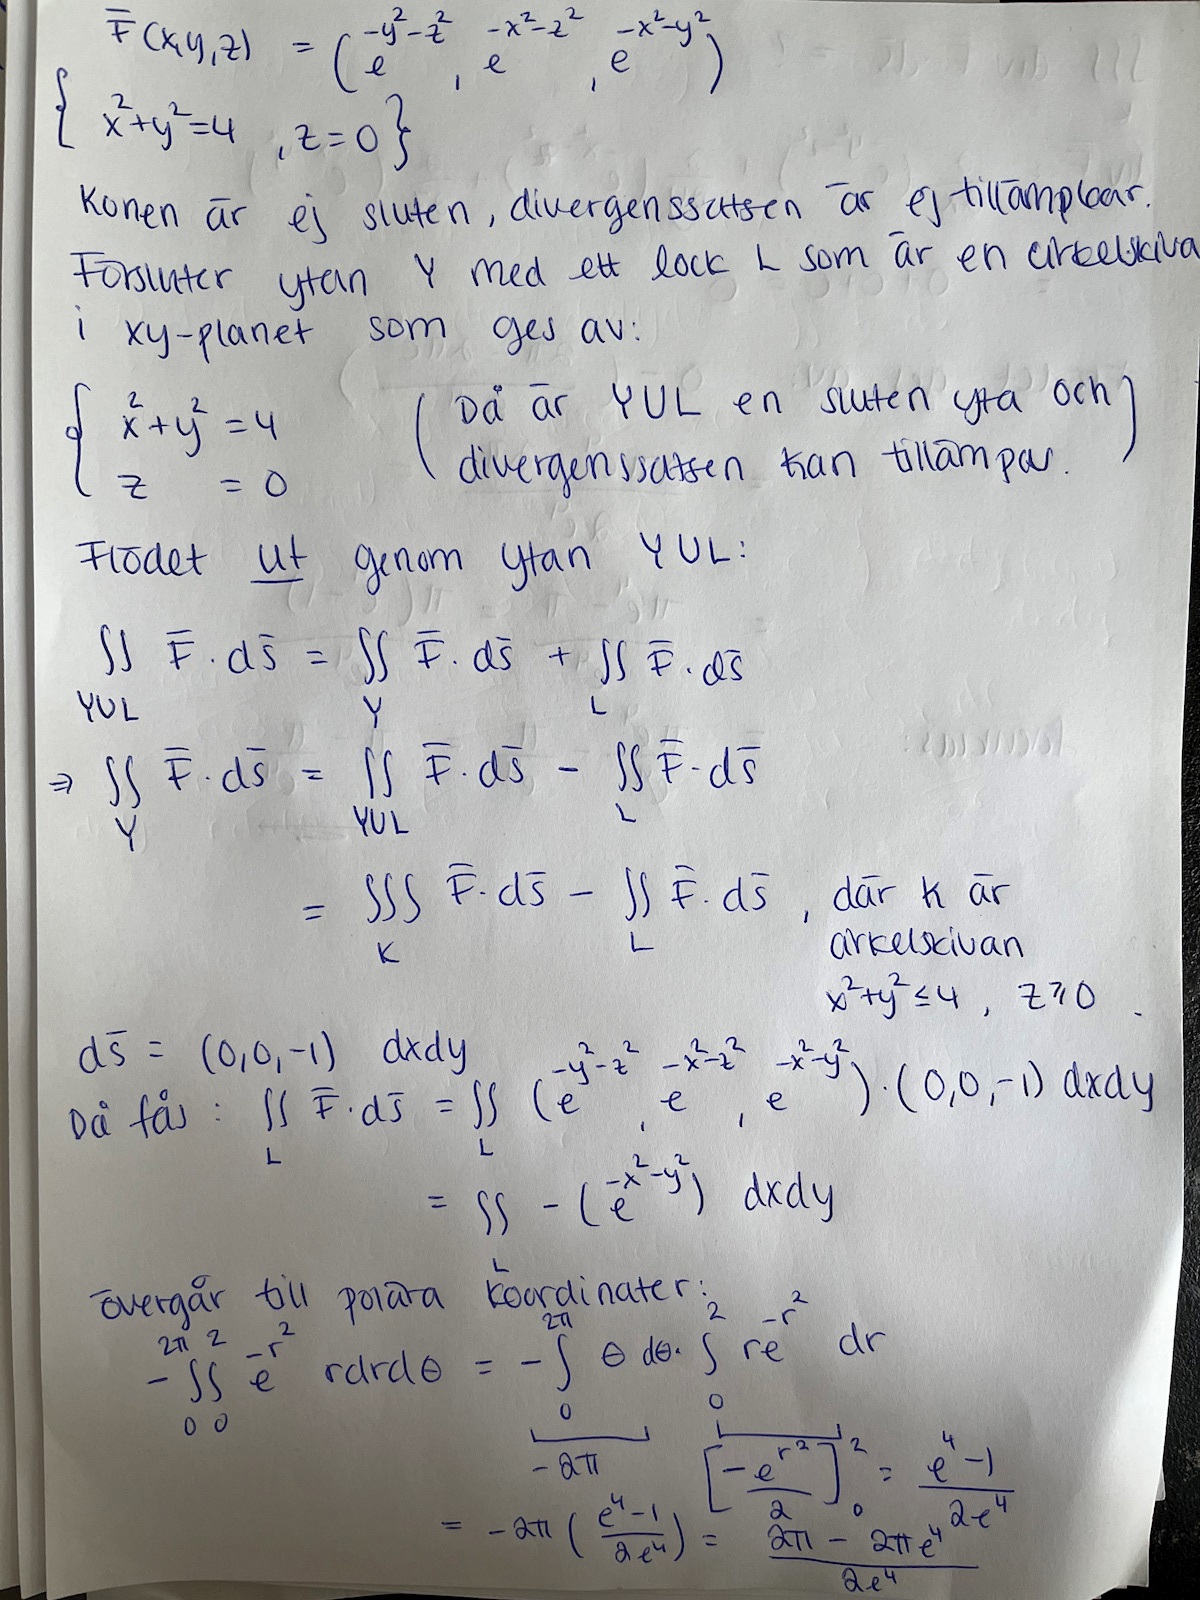 F̅(x,y,z) = (e^{-y²-z²}, e^{-x²-z²}, e^{-x²-y²})
{ x²+y²=4 , z=0 }
Konen är ej sluten, divergenssatsen är ej tillämpbar.
Försluter ytan Y med ett lock L som är en cirkelskiva
i xy-planet som ges av:
{ x²+y² = 4
z = 0
( Då är YUL en sluten yta och
divergenssatsen kan tillämpas. )
Flödet ut genom ytan YUL:
∬_{YUL} F̅·ds̅ = ∬_Y F̅·ds̅ + ∬_L F̅·ds̅
⇒ ∬_Y F̅·ds̅ = ∬_{YUL} F̅·ds̅ − ∬_L F̅·ds̅
= ∭_K F̅·ds̅ − ∬_L F̅·ds̅ , där K är
cirkelskivan
x²+y² ≤ 4 , z ≥ 0 .
ds̅ = (0,0,-1) dxdy
Då fås : ∬_L F̅·ds̅ = ∬_L (e^{-y²-z²}, e^{-x²-z²}, e^{-x²-y²})·(0,0,-1) dxdy
= ∬_L -(e^{-x²-y²}) dxdy
övergår till polära koordinater:
-∫_0^{2π}∫_0^2 e^{-r²} rdrdθ = -∫_0^{2π} θ dθ · ∫_0^2 re^{-r²} dr
-2π [-e^{r²}/2]_0^2 = (e⁴-1)/(2e⁴)
= -2π ((e⁴-1)/(2e⁴)) = (2π - 2πe⁴)/(2e⁴)